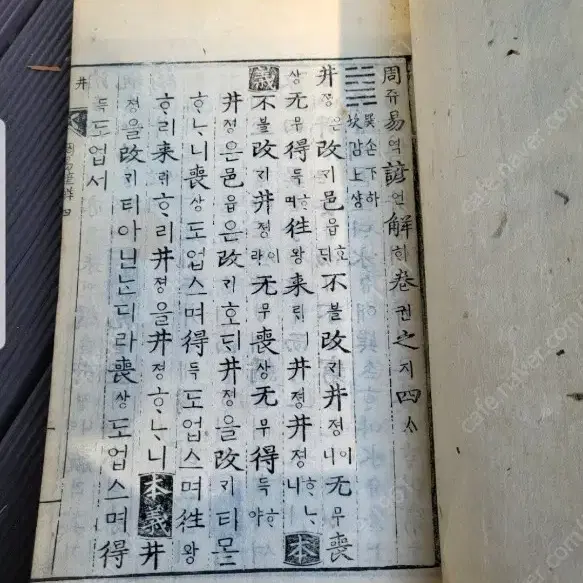 周쥬易역諺언解ᄒᆡ卷권之지四ᄉᆞ
巽손下하
坎감上샹
井졍은改ᄀᆡ邑읍호ᄃᆡ不블改ᄀᆡ井졍이니无무喪
상无무得득ᄒᆞ며徃왕來ᄅᆡ井졍井졍ᄒᆞᄂᆞ니本
義不블改ᄀᆡ井졍이라无무喪상无무得득ᄒᆞ야
井졍은邑읍은改ᄀᆡ호ᄃᆡ井졍을改ᄀᆡ티몯
ᄒᆞᄂᆞ니喪상도업스며得득도업스며徃왕
ᄒᆞ리來ᄅᆡᄒᆞ리井졍을井졍ᄒᆞᄂᆞ니本義井
졍을改ᄀᆡ티아닌ᄂᆞᆫ디라喪상도업스며得
득도업서
井
周易諺解 四
cafe.naver.com